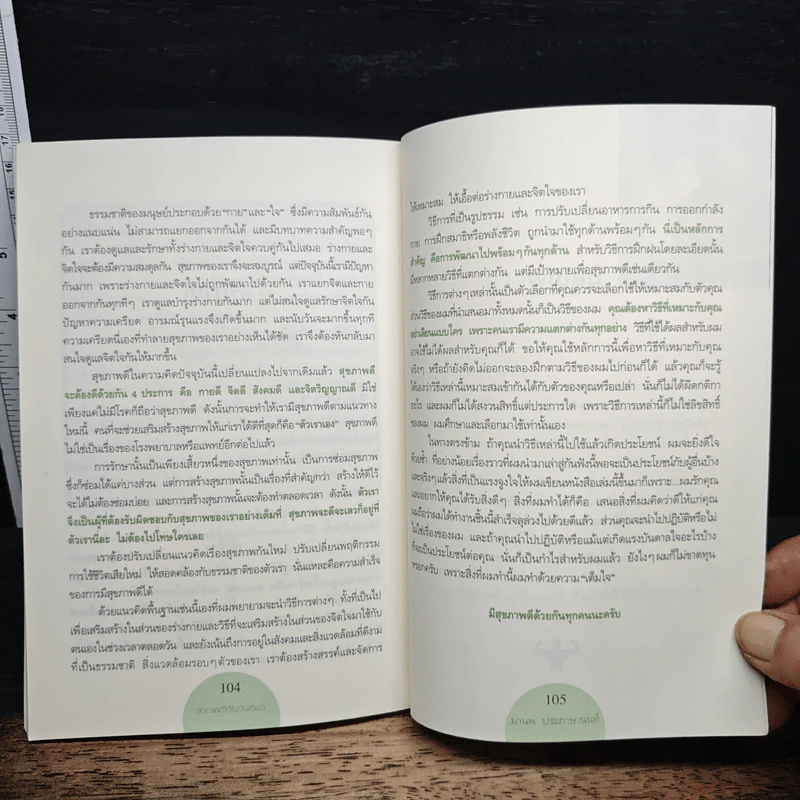 ธรรมชาติของมนุษย์ประกอบด้วย "กาย" และ "ใจ" ซึ่งมีความสัมพันธ์กัน
อย่างแนบแน่น ไม่สามารถแยกออกจากกันได้ และมีบทบาทความสำคัญพอๆ
กัน เราต้องดูแลและรักษาทั้งร่างกายและจิตใจควบคู่กันไปเสมอ ร่างกายและ
จิตใจจะต้องมีความสมดุลกัน สุขภาพของเราจึงจะสมบูรณ์ แต่ปัจจุบันนี้เรามีปัญหา
กันมาก เพราะร่างกายและจิตใจไม่ถูกพัฒนาไปด้วยกัน เราแยกจิตและกาย
ออกจากกันทุกทีๆ เราดูแลบำรุงร่างกายกันมาก แต่ไม่สนใจดูแลรักษาจิตใจกัน
ปัญหาความเครียด อารมณ์รุนแรงจึงเกิดขึ้นมาก และนับวันจะมากขึ้นทุกที
ความเครียดนี่เองที่ทำลายสุขภาพของเราอย่างเห็นได้ชัด เราจึงต้องหันกลับมา
สนใจดูแลจิตใจกันให้มากขึ้น
สุขภาพดีในความคิดปัจจุบันนี้เปลี่ยนแปลงไปจากเดิมแล้ว สุขภาพดี
จะต้องดีด้วยกัน 4 ประการ คือ กายดี จิตดี สังคมดี และจิตวิญญาณดี มิใช่
เพียงแค่ไม่มีโรคก็ถือว่าสุขภาพดี ดังนั้นการจะทำให้เรามีสุขภาพดีตามแนวทาง
ใหม่นี้ คนที่จะช่วยเสริมสร้างสุขภาพให้แก่เราได้ดีที่สุดก็คือ "ตัวเราเอง" สุขภาพดี
ไม่ใช่เป็นเรื่องของโรงพยาบาลหรือแพทย์อีกต่อไปแล้ว
การรักษานั้นเป็นเพียงเสี้ยวหนึ่งของสุขภาพเท่านั้น เป็นการซ่อมสุขภาพ
ซึ่งก็ซ่อมได้แค่บางส่วน แต่การสร้างสุขภาพนั้นเป็นเรื่องที่สำคัญกว่า สร้างให้ดีไว้
จะได้ไม่ต้องซ่อมบ่อย และการสร้างสุขภาพนั้นจะต้องทำตลอดเวลา ดังนั้น ตัวเรา
จึงเป็นผู้ที่ต้องรับผิดชอบกับสุขภาพของเราอย่างเต็มที่ สุขภาพจะดีจะเลวก็อยู่ที่
ตัวเรานี่ละ ไม่ต้องไปโทษใครเลย
เราต้องปรับเปลี่ยนแนวคิดเรื่องสุขภาพกันใหม่ ปรับเปลี่ยนพฤติกรรม
การใช้ชีวิตเสียใหม่ ให้สอดคล้องกับธรรมชาติของตัวเรา นั่นแหละคือความสำเร็จ
ของการมีสุขภาพดีได้
ด้วยแนวคิดพื้นฐานเช่นนี้เองที่ผมพยายามจะนำวิธีการต่างๆ ทั้งที่เป็นไป
เพื่อเสริมสร้างในส่วนของร่างกายและวิธีที่จะเสริมสร้างในส่วนของจิตใจมาใช้กับ
ตนเองในช่วงเวลาตลอดวัน และยังเน้นถึงการอยู่ในสังคมและสิ่งแวดล้อมที่ดีงาม
ที่เป็นธรรมชาติ สิ่งแวดล้อมรอบๆ ตัวของเรา เราต้องสร้างสรรค์และจัดการ
104
ให้เหมาะสม ให้เอื้อต่อร่างกายและจิตใจของเรา
วิธีการที่เป็นรูปธรรม เช่น การปรับเปลี่ยนอาหารการกิน การออกกำลัง
กาย การฝึกสมาธิหรือพลังชีวิต ถูกนำมาใช้ทุกด้านพร้อมๆ กัน นี่เป็นหลักการ
สำคัญ คือการพัฒนาไปพร้อมๆ กันทุกด้าน สำหรับวิธีการฝึกฝนโดยละเอียดนั้น
มีหลากหลายวิธีที่แตกต่างกัน แต่มีเป้าหมายเพื่อสุขภาพดีเช่นเดียวกัน
วิธีการต่างๆ เหล่านั้นเป็นตัวเลือกที่คุณควรจะเลือกใช้ให้เหมาะสมกับตัวคุณ
ส่วนวิธีของผมที่นำเสนอมาทั้งหมดนั้นก็เป็นวิธีของผม คุณต้องหาวิธีที่เหมาะกับคุณ
อย่าเลียนแบบใคร เพราะคนเรามีความแตกต่างกันทุกอย่าง วิธีที่ใช้ได้ผลสำหรับผม
อาจใช้ไม่ได้ผลสำหรับคุณก็ได้ ขอให้คุณใช้หลักการนี้เพื่อหาวิธีที่เหมาะกับคุณ
จริงๆ หรือถ้ายังคิดไม่ออกจะลองฝึกตามวิธีของผมไปก่อนก็ได้ แล้วคุณก็จะรู้
ได้เองว่าวิธีเหล่านี้เหมาะสมเข้ากันได้กับตัวของคุณหรือเปล่า นั่นก็ไม่ได้ผิดกติกา
อะไร และผมก็ไม่ได้สงวนสิทธิ์แต่ประการใด เพราะวิธีการเหล่านี้ก็ไม่ใช่ลิขสิทธิ์
ของผม ผมศึกษาและเลือกมาใช้เท่านั้นเอง
ในทางตรงข้าม ถ้าคุณนำวิธีเหล่านี้ไปใช้แล้วเกิดประโยชน์ ผมจะยิ่งดีใจ
ด้วยซ้ำ ที่อย่างน้อยเรื่องราวที่ผมนำมาเล่าสู่กันฟังนี้พอจะเป็นประโยชน์กับผู้อื่นบ้าง
และจริงๆ แล้วสิ่งที่เป็นแรงจูงใจให้ผมเขียนหนังสือเล่มนี้ขึ้นมาก็เพราะ...ผมรักคุณ
และอยากให้คุณได้รับสิ่งดีๆ สิ่งที่ผมทำได้ก็คือ เสนอสิ่งที่ผมคิดว่าดีให้แก่คุณ
ผมถือว่าผมได้ทำงานชิ้นนี้สำเร็จลุล่วงไปด้วยดีแล้ว ส่วนคุณจะนำไปปฏิบัติหรือไม่
ไม่ใช่เรื่องของผม และถ้าคุณนำไปปฏิบัติหรือแม้แต่เกิดแรงบันดาลใจอะไรบ้าง
ที่จะเป็นประโยชน์ต่อคุณ นั่นก็เป็นกำไรสำหรับผมแล้ว ยังไงๆ ผมก็ไม่ขาดทุน
หรอกครับ เพราะสิ่งที่ผมทำนี้ผมทำด้วยความ "เต็มใจ"
มีสุขภาพดีด้วยกันทุกคนนะครับ
105
มานพ ประภาษานนท์